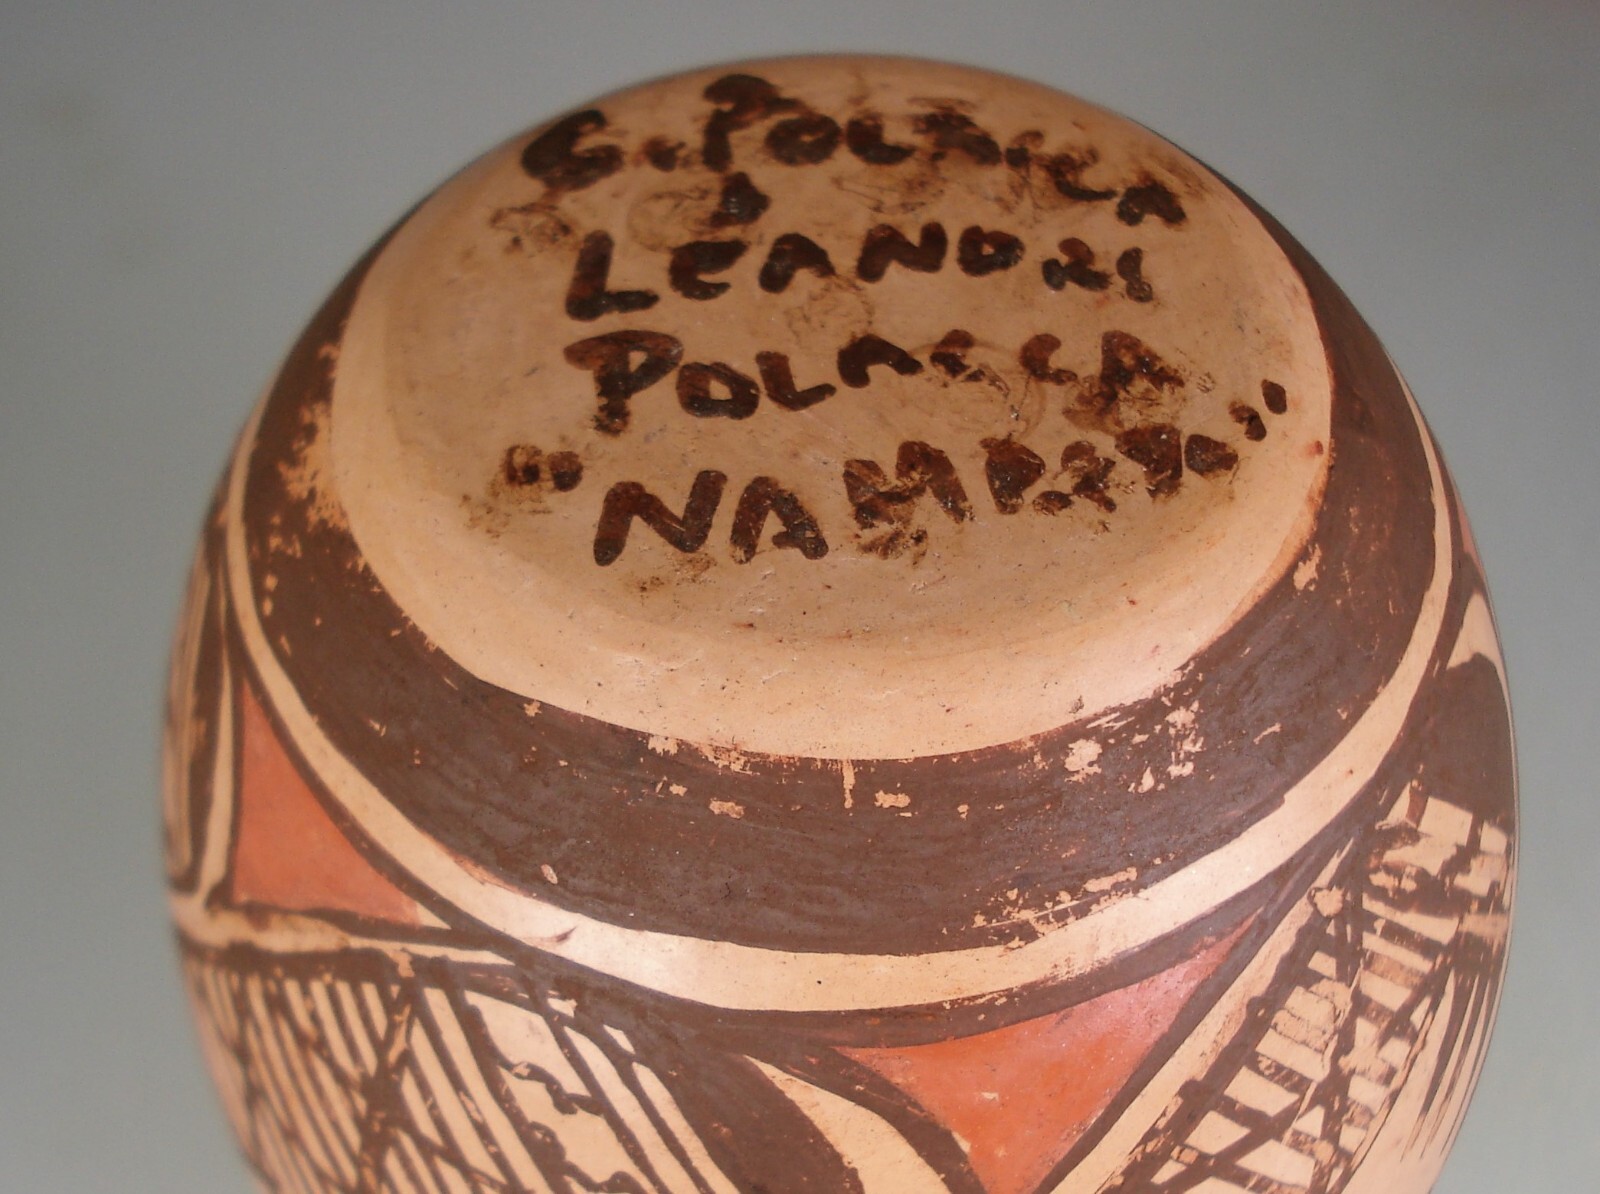 G. POLACCA
&
LEANDRE
POLACCA
"NAMPEYO"